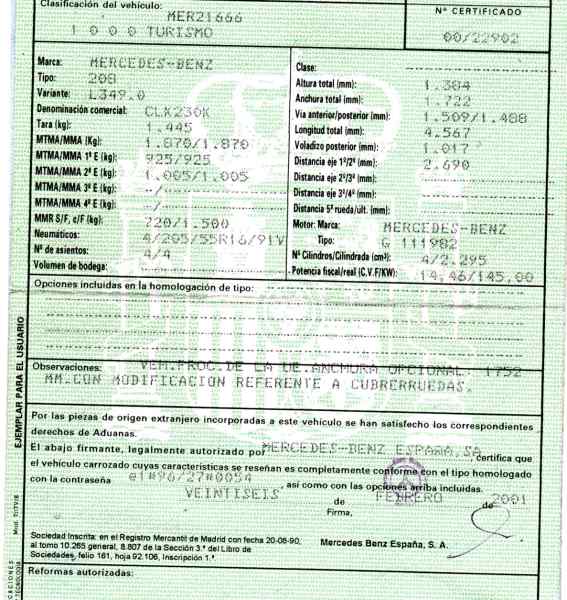 Clasificación del vehículo:
MER21666
1 0 0 0 TURISMO
Nº CERTIFICADO
00/22902
Marca: MERCEDES-BENZ
Tipo: 208
Variante: L349.0
Denominación comercial: CLK230K
Tara (kg): 1.445
MTMA/MMA (Kg): 1.870/1.870
MTMA/MMA 1º E (kg): 925/925
MTMA/MMA 2º E (kg): 1.005/1.005
MTMA/MMA 3º E (kg): --/--
MTMA/MMA 4º E (kg): --/--
MMR S/F, c/F (kg): 720/1.500
Neumáticos: 4/205/55R16/91V
Nº de asientos: 4/4
Volumen de bodega:
Clase:
Altura total (mm): 1.384
Anchura total (mm): 1.722
Vía anterior/posterior (mm): 1.509/1.488
Longitud total (mm): 4.567
Voladizo posterior (mm): 1.017
Distancia eje 1º/2º (mm): 2.690
Distancia eje 2º/3º (mm):
Distancia eje 3º/4º (mm):
Distancia 5ª rueda/ult. (mm):
Motor: Marca: MERCEDES-BENZ
Tipo: G 111982
Nº Cilindros/Cilindrada (cm³): 4/2.295
Potencia fiscal/real (C.V.F/KW): 14,46/145,00
Opciones incluidas en la homologación de tipo:
Observaciones: VEH.PROC.DE LA UE.ANCHURA OPCIONAL: 1752
MM.CON MODIFICACION REFERENTE A CUBRERRUEDAS.
EJEMPLAR PARA EL USUARIO
Por las piezas de origen extranjero incorporadas a este vehículo se han satisfecho los correspondientes
derechos de Aduanas.
El abajo firmante, legalmente autorizado por MERCEDES-BENZ ESPAÑA,SA certifica que
el vehículo carrozado cuyas características se reseñan es completamente conforme con el tipo homologado
con la contraseña e1*96/27*0054, así como con las opciones arriba incluidas.
VEINTISEIS de FEBRERO de 2001
Firma,
Sociedad Inscrita: en el Registro Mercantil de Madrid con fecha 20-06-90,
al tomo 10.265 general, 8.807 de la Sección 3.ª del Libro de
Sociedades, folio 161, hoja 92.106, Inscripción 1.ª
Mercedes Benz España, S. A.
Reformas autorizadas: